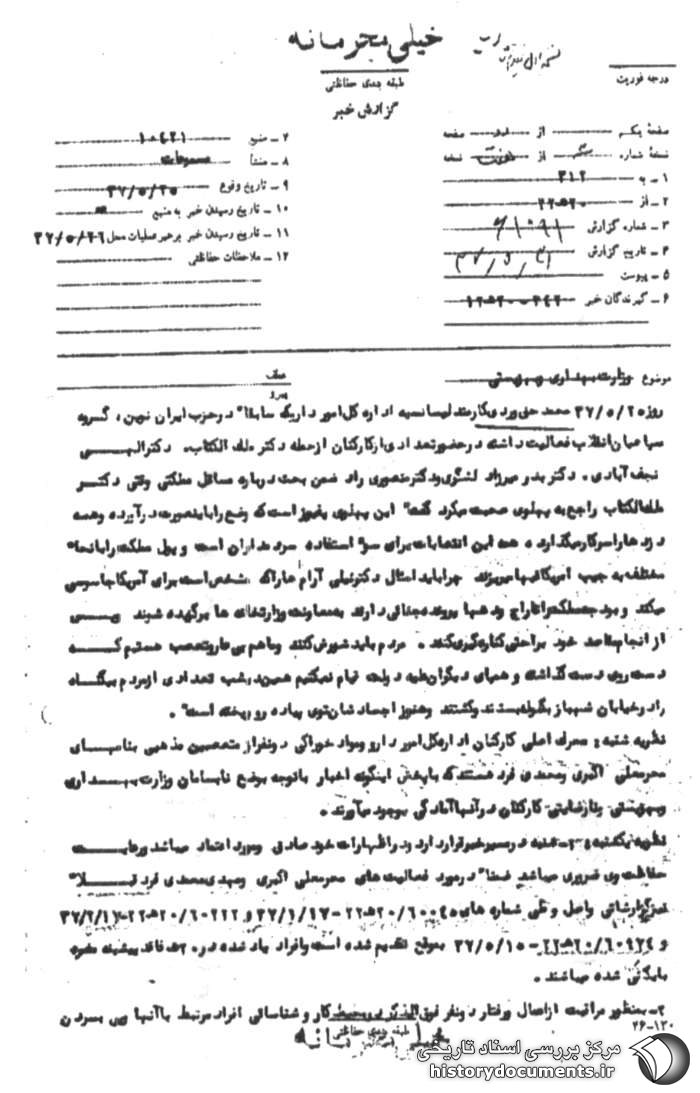 خیلی محرمانه
طبقه بندی حفاظتی
درجه فوریت
گزارش خبر
صفحه یکم از دو صفحه
نسخه شماره از نسخه
۱ ـ به ۳۱۲
۲ ـ از ۲۰ﻫ۲۲
۳ ـ شماره گزارش
۴ ـ تاریخ گزارش
۵ ـ پیوست
۶ ـ گیرندگان خبر
۷ ـ منبع ۱۰۶۲۱
۸ ـ منشأ مسموعات
۹ ـ تاریخ وقوع
۱۰ ـ تاریخ رسیدن خبر به منبع
۱۱ ـ تاریخ رسیدن خبر به رهبر عملیات محل
۱۲ ـ ملاحظات حفاظتی
موضوع وزارت بهداری و بهزیستی
عطف
پیرو
روز ۳۷/۵/۲۵ محمد حق وردی کارمند لیسانسیه اداره کل امور دارو که سابقا" در حزب ایران نوین ، گروه
سپاهیان انقلاب فعالیت داشته در حضور تعدادی از کارکنان از جمله دکتر ملک الکتاب، دکتر الهی
نجف آبادی ، دکتر بدر میرزاد لشگری و دکتر منصوری راد ضمن بحث درباره مسائل مملکتی وقتی دکتر
ملک الکتاب راجع به پهلوی صحبت میکرد گفت" این پهلوی پفیوز است که وضع را باینصورت درآورده و همه
دزدها را سرکار میگذارد ، همه این انتصابات برای سوء استفاده سردمداران است و پول مملکت را بانحاء
مختلفه به جیب آمریکائیها میریزند چرا باید امثال دکتر نیلی آرام ها را که مشخص است برای آمریکا جاسوسی
میکند و بودجه مملکت را تاراج و دهها پرونده جنائی دارند به معاونت وزارتخانه ها برگزیده شوند و پس
از انجام مقاصد خود براحتی کناره گیری کنند . مردم باید شورش کنند و ما هم بی عار و تعصب هستیم که
دست روی دست گذاشته و همپای دیگران علیه دولت قیام نمیکنیم همین دیشب تعدادی از مردم بیگناه
را در خیابان شهباز بگلوله بستند و کشتند و هنوز اجسادشان توی پیاده رو ریخته است" .
نظریه شنبه : محرک اصلی کارکنان اداره کل امور دارو و مواد خوراکی دو نفر از متعصبین مذهبی بنامهای
محرمعلی اکبری و مهدی فرد هستند که با پخش اینگونه اخبار با توجه بوضع نابسامان وزارت بهداری
و بهزیستی و نارضایتی کارکنان در آنها آمادگی بوجود میآورند .
نظریه یکشنبه : ۱ـ شنبه در مسیر خبر قرار دارد و در اظهارات خود صادق و مورد اعتماد میباشد و رعایت
حفاظت وی ضروری میباشد ضمنا" در مورد فعالیت های محرمعلی اکبری و مهدی محمدی فرد قبلا"
نیز گزارشاتی واصل و طی شماره های ۲۰/۶۰۰۴۵ﻫ۲۲ - ۳۷/۱/۱۷ و ۲۰/۶۰۲۱۲ﻫ۲۲ - ۳۷/۲/۱۷
و ۲۰/۶۰۹۲۴ﻫ۲۲ - ۳۷/۵/۱۵ بموقع تقدیم شده است و افراد یاد شده در ۲۰ﻫ فاقد پیشینه مضره
بایگانی شده میباشند .
۲ـ بمنظور مراقبت از اعمال و رفتار دو نفر فوق الذکر در محیط کار و شناسائی افراد مرتبط با آنها پی بردن
طبقه بندی حفاظتی
خیلی محرمانه
۲۶-۱۳۰
مرکز بررسی اسناد تاریخی
historydocuments.ir